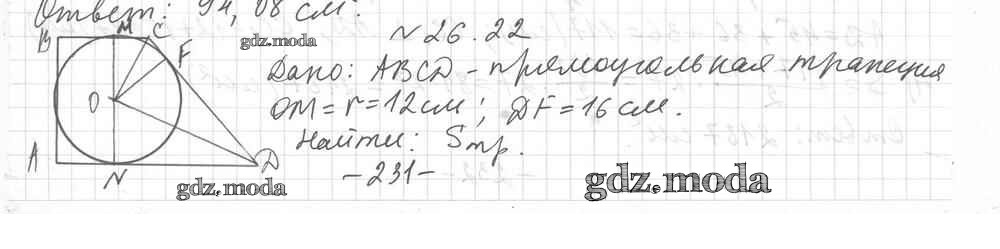 Ответ: 94,08 см².
N 26.22
B M C F
gdz.moda
Дано: ABCD - прямоугольная трапеция
O
OM = r = 12 см; DF = 16 см.
Найти: Sтр.
A N D
- 231 -
gdz.moda
gdz.moda